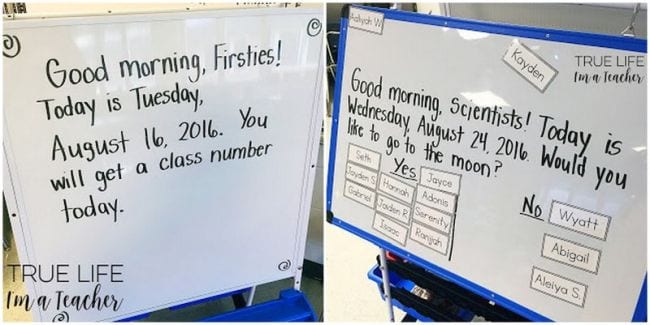 Good morning, Firsties!
Today is Tuesday,
August 16, 2016. You
will get a class number
today.
TRUE LIFE
I'm a Teacher
Aaliyah W.
Kayden
TRUE LIFE
I'm a Teacher
Good morning, Scientists! Today is
Wednesday, August 24, 2016. Would you
like to go to the moon?
Yes
Seth
Jayden S.
Gabriel
Hannah
Jaiden R.
Isaac
Jayce
Adonis
Serenity
Ranyah
No
Wyatt
Abigail
Aleiya S.